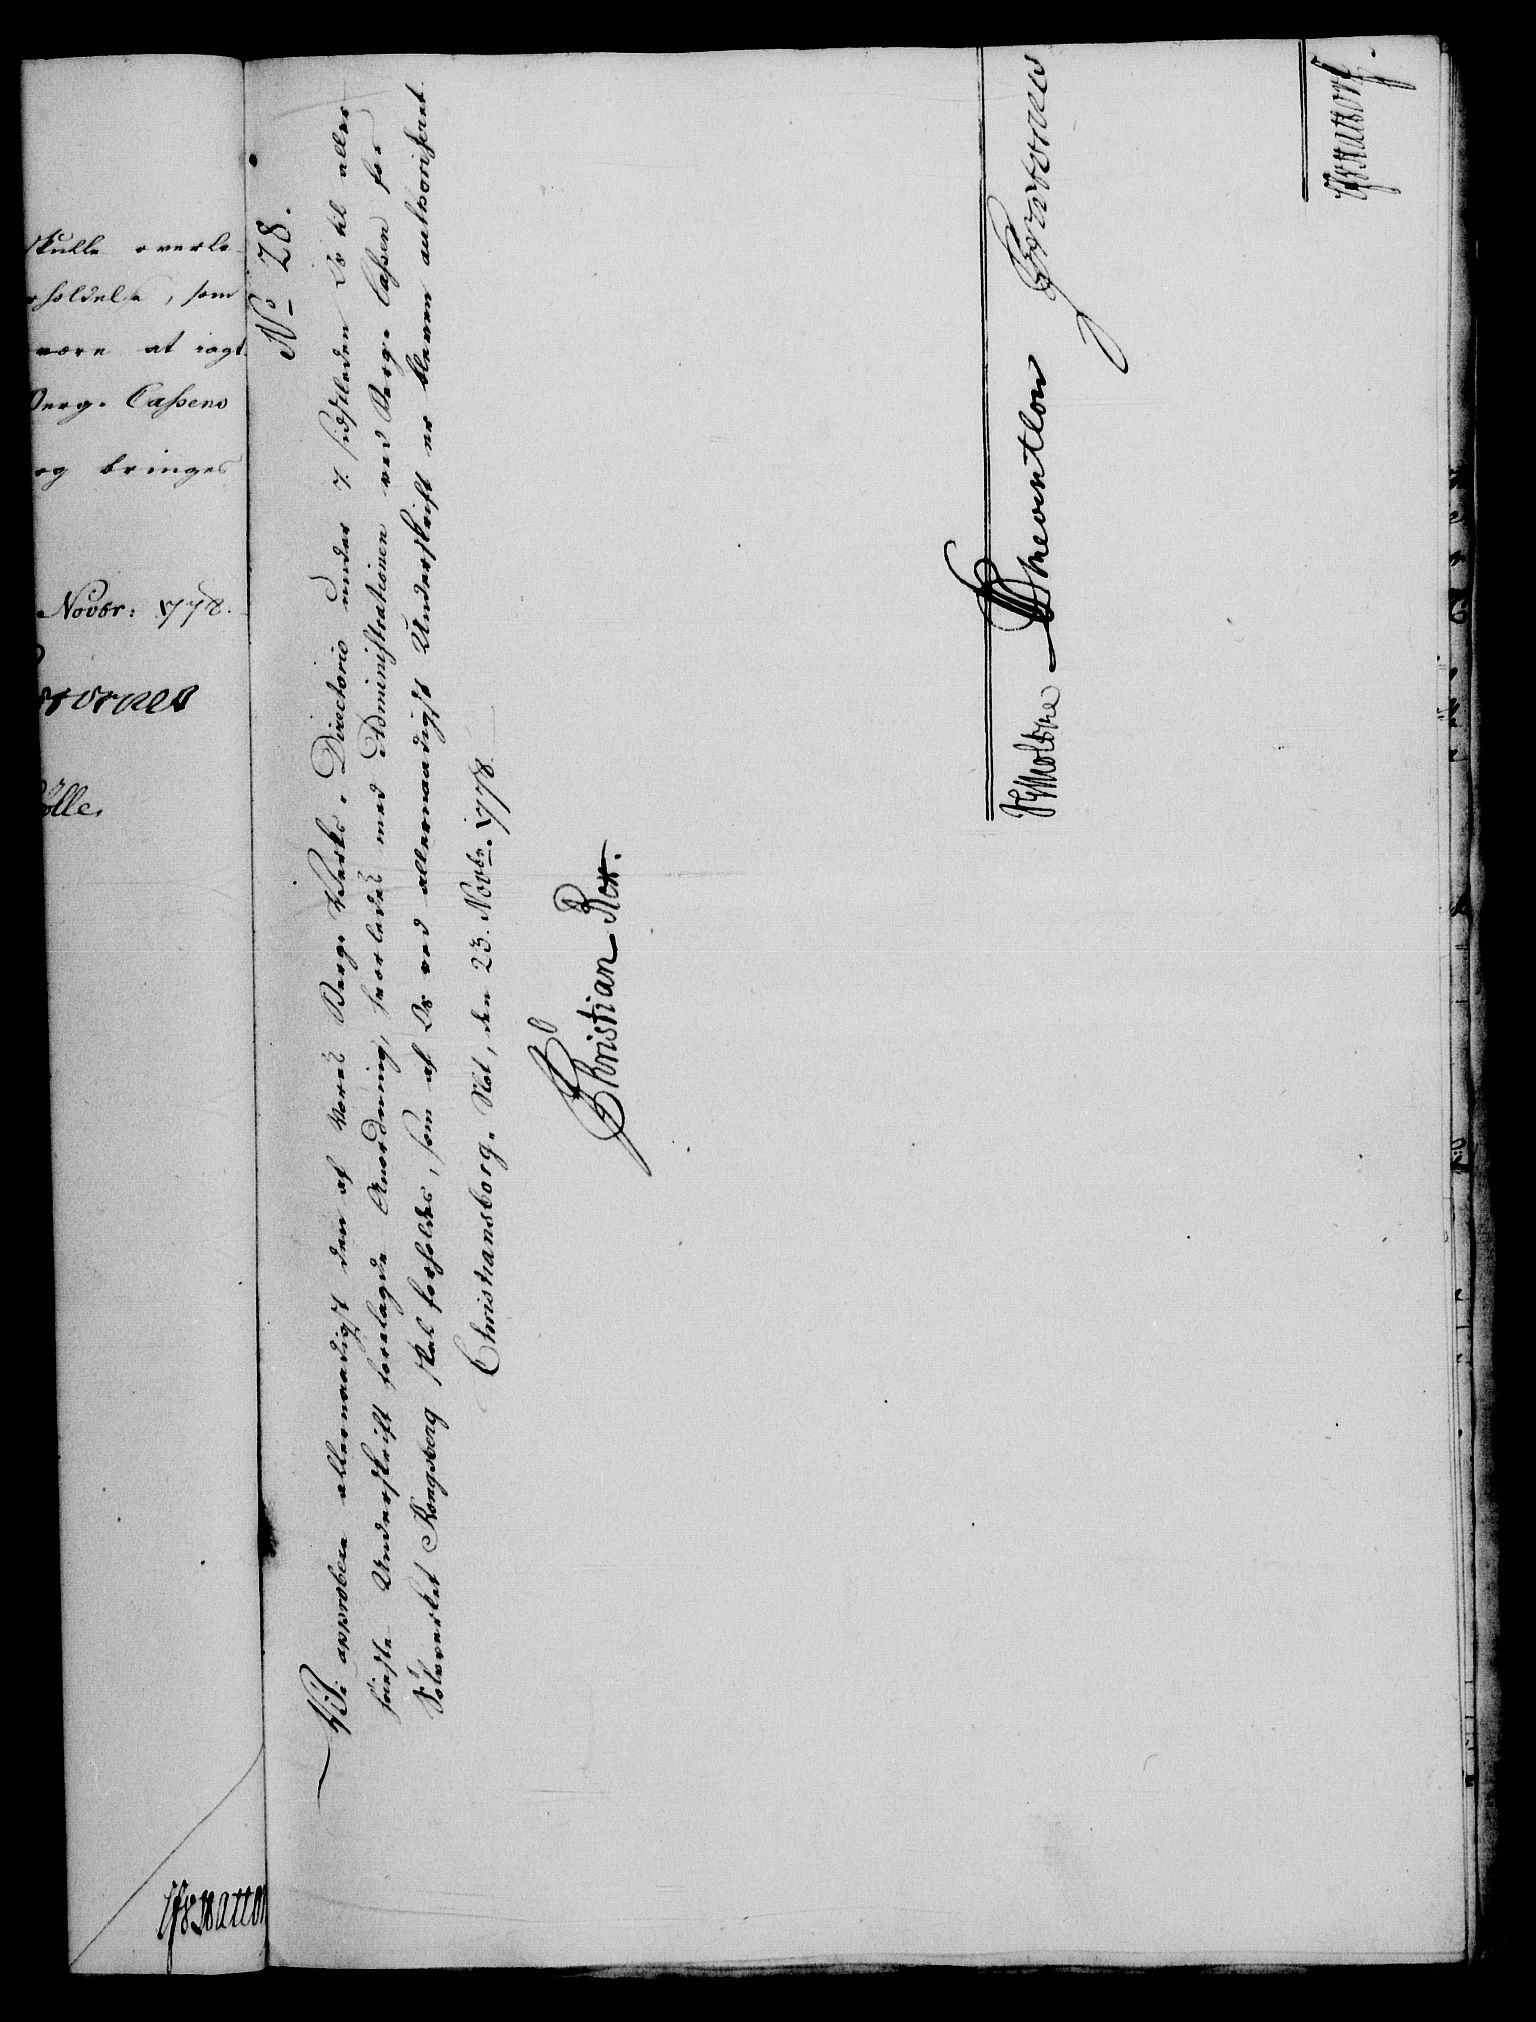 skulle overle
rholdelse, som
være at iagt
Berg-Cassens
og bringes
Novbr: 1778.
No 28.
Vi approbere allernaadigst den af Vores Berg-Verks-Directorio under 7 sidstleden Os til aller
høieste Underskrift forelagde Anordning, hvorledes med Administrationen ved Berg-Cassen for
Sølvverket Kongsberg skal forholdes, som af Os ved allernaadigst Underskrift er bleven authoriseret.
Christiansborg-Slot, den 23. Novbr. 1778.
Christian Rex.
HMoltke Reventlow